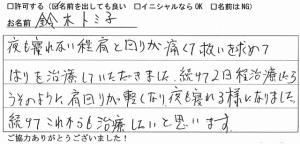 □許可する (☑名前を出しても良い □イニシャルなら OK □名前はNG)
お名前 鈴木トミ子
夜も寝れない程肩と回りが痛くて救いを求めて
はりを治療していただきました。続けて2日程治療したら
うそのように、肩回りが軽くなり、夜も寝れる様になりました。
続けてこれからも治療したいと思います。
ご協力ありがとうございました!